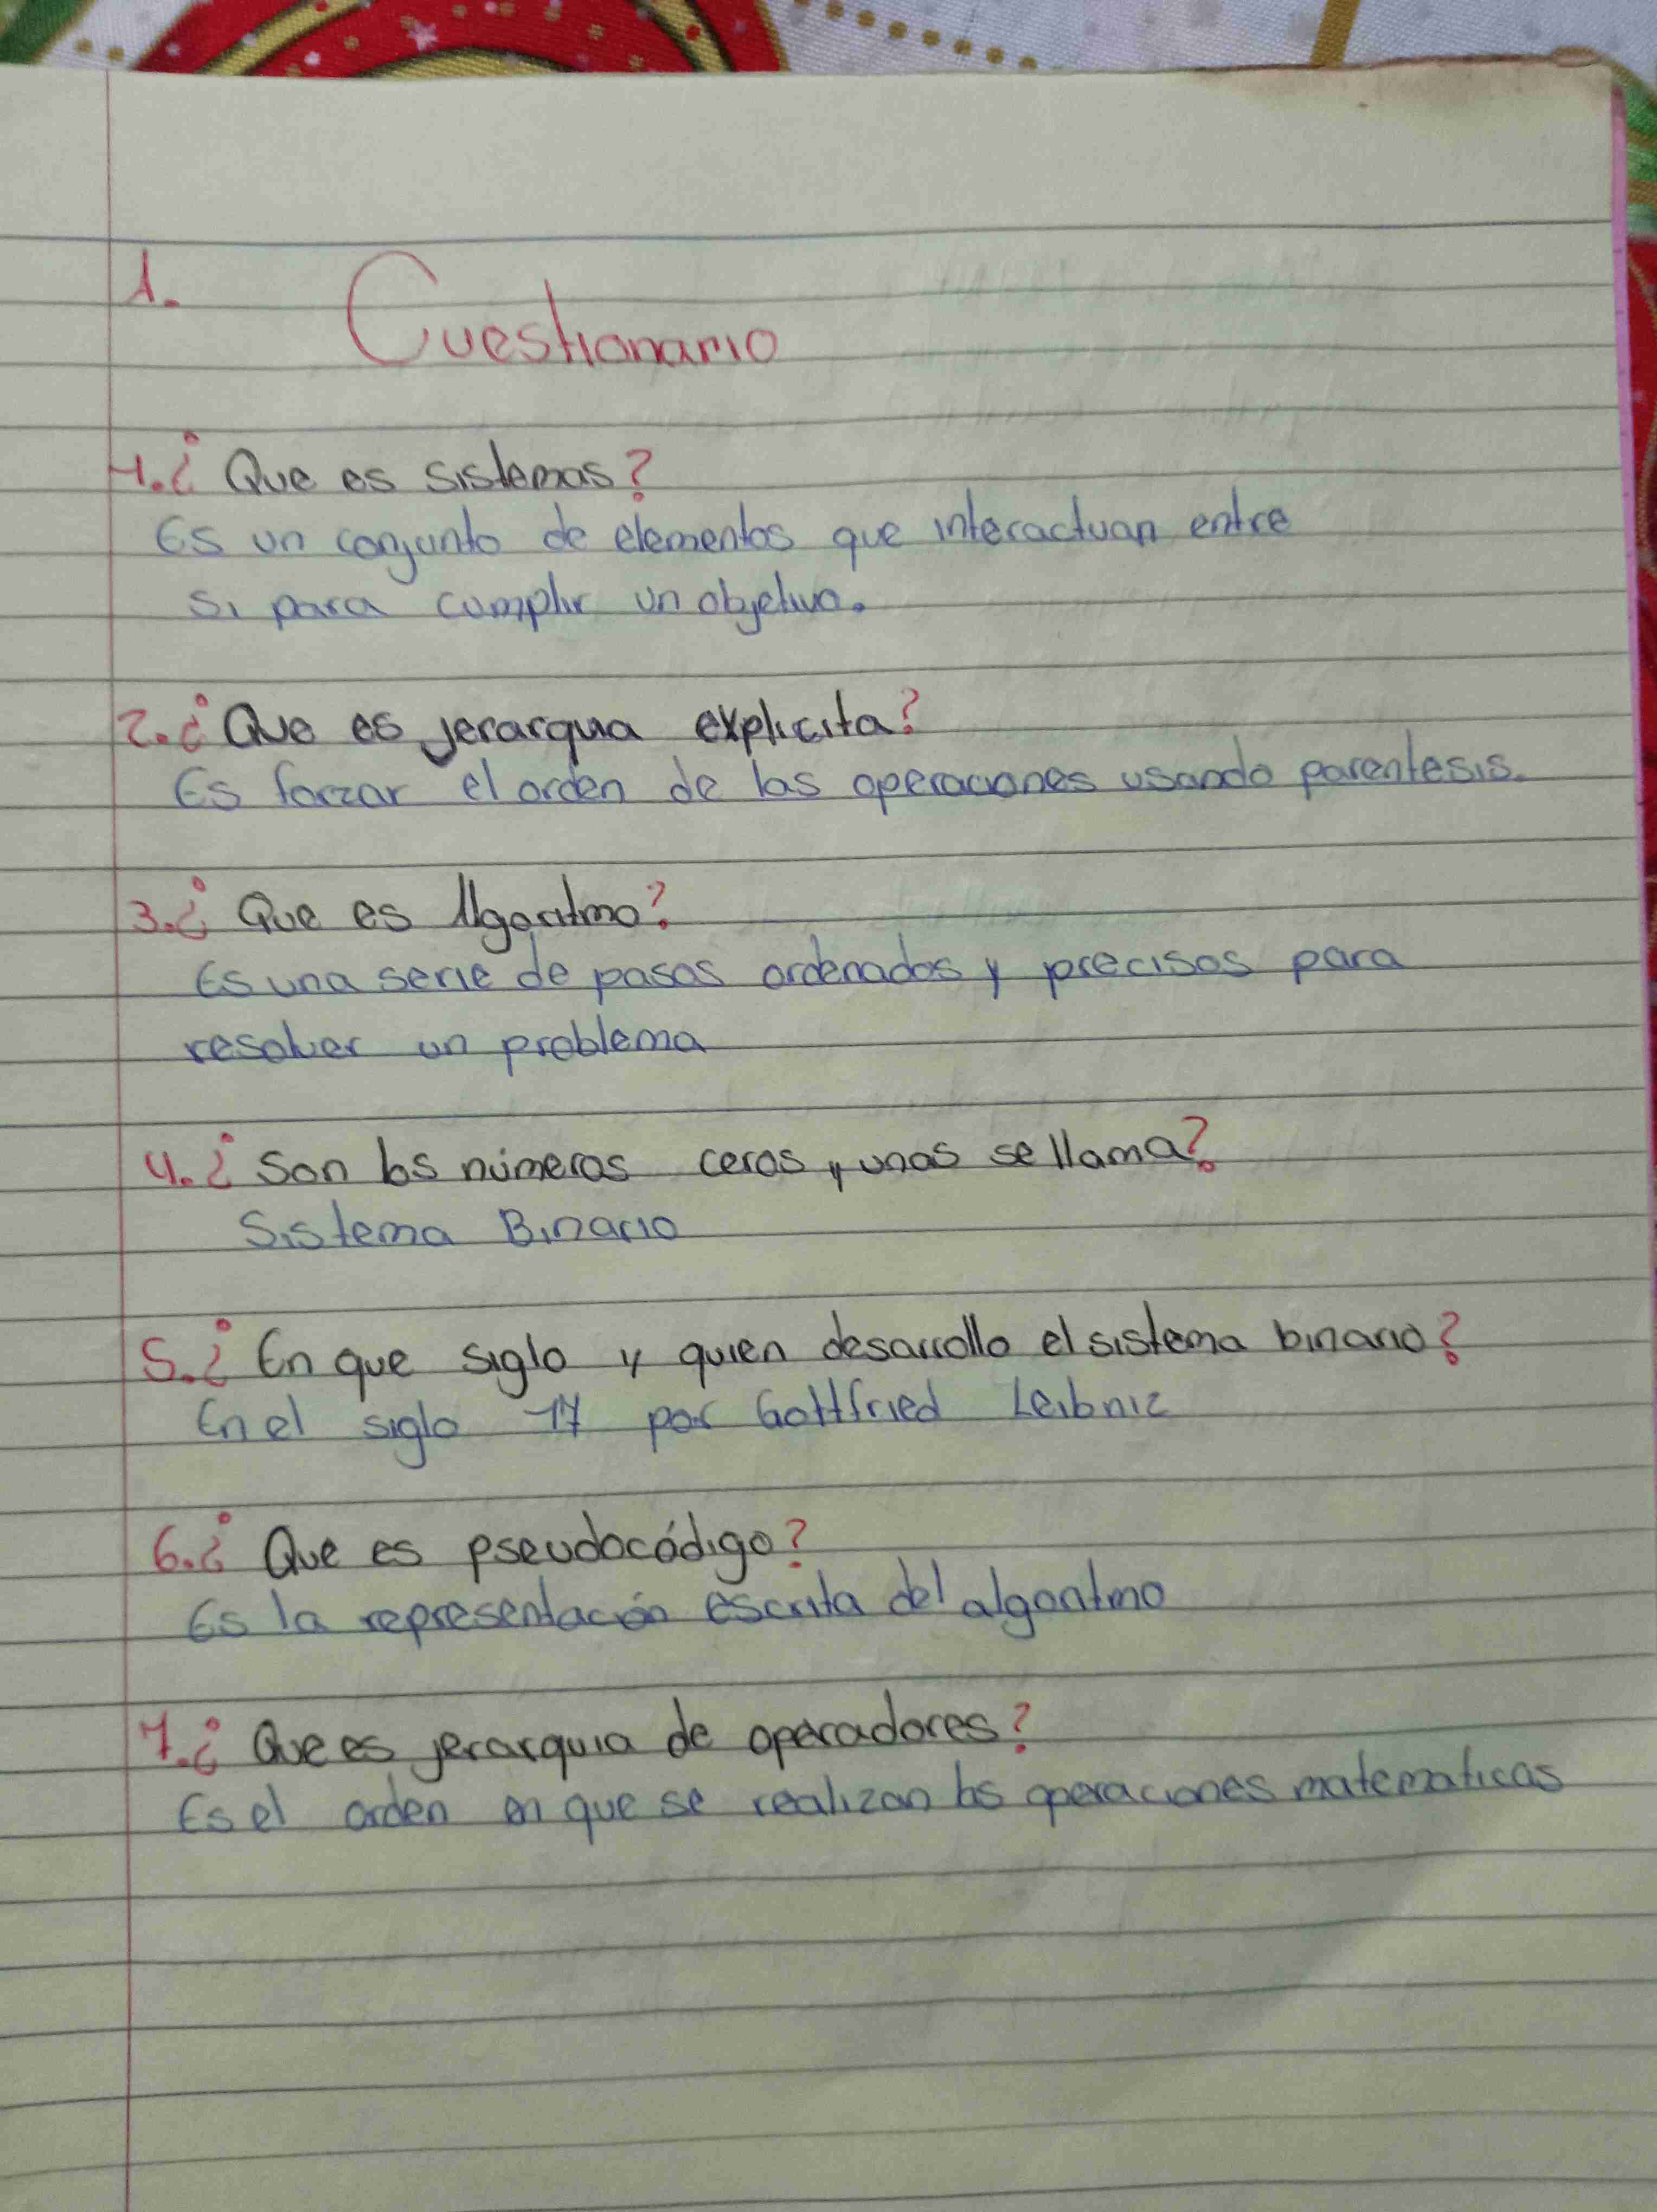 1.
Cuestionario
1.¿ Que es sistemas?
Es un conjunto de elementos que interactuan entre
si para cumplir un objetivo.
2.¿ Que es jerarquia explicita?
Es forzar el orden de las operaciones usando parentesis.
3.¿ Que es Algoritmo?
Es una serie de pasos ordenados y precisos para
resolver un problema
4.¿ Son los números ceros y unos se llama?
Sistema Binario
5.¿ En que siglo y quien desarrollo el sistema binario?
En el siglo 17 por Gottfried Leibniz
6.¿ Que es pseudocódigo?
Es la representación escrita del algoritmo
7.¿ Que es jerarquia de operadores?
Es el orden en que se realizan las operaciones matematicas